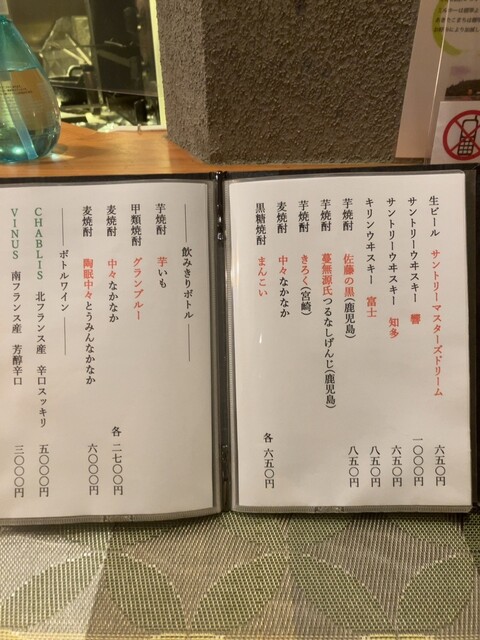 生ビール サントリーマスターズドリーム 六五〇円
サントリーウヰスキー 響 一〇〇〇円
サントリーウヰスキー 知多 六五〇円
キリンウヰスキー 富士 八五〇円
芋焼酎 佐藤の黒(鹿児島) 八五〇円
芋焼酎 蔓無源氏つるなしげんじ(鹿児島)
芋焼酎 きろく(宮崎)
麦焼酎 中々なかなか
黒糖焼酎 まんこい 各 六五〇円
飲みきりボトル
芋焼酎 芋いも
甲類焼酎 グランブルー
麦焼酎 中々なかなか 各 二七〇〇円
麦焼酎 陶眠中々とうみんなかなか 六〇〇〇円
ボトルワイン
CHABLIS 北フランス産 辛口スッキリ 五〇〇〇円
VINUS 南フランス産 芳醇辛口 三〇〇〇円